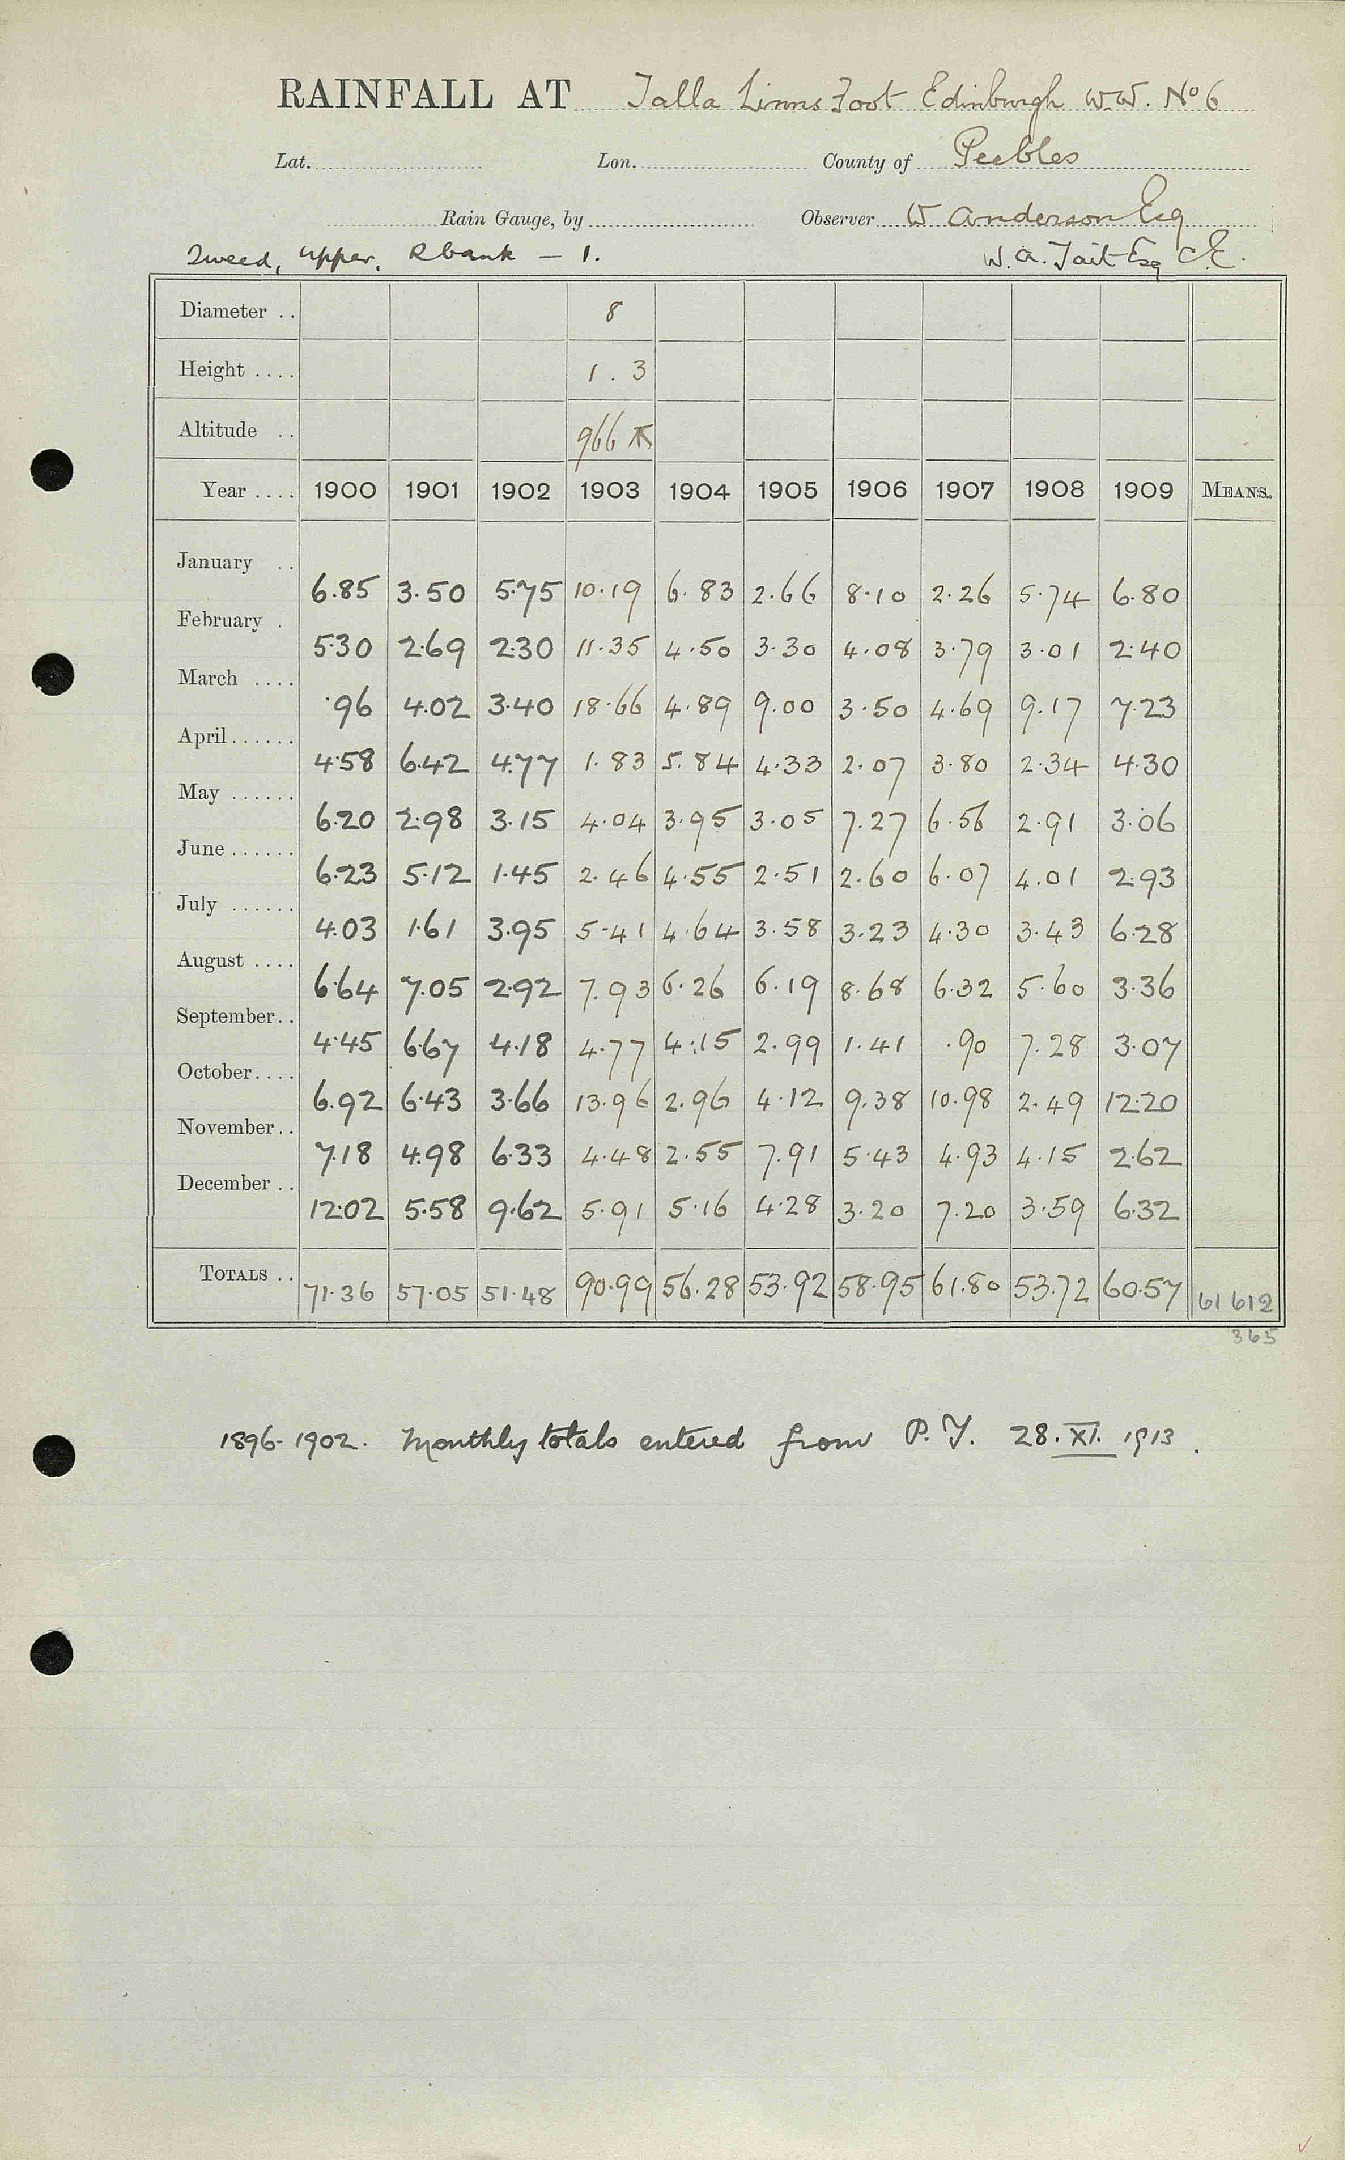 RAINFALL AT Talla Linns Foot Edinburgh W.W. No 6
Lat. Lon. County of Peebles
Rain Gauge, by Observer W Anderson Esq
Tweed, upper, R bank — 1. W. A. Tait Esq C.E.
Diameter .. 8
Height .... 1 . 3
Altitude .. 966
Year .... 1900 1901 1902 1903 1904 1905 1906 1907 1908 1909 MEANS.
January .. 6.85 3.50 5.75 10.19 6.83 2.66 8.10 2.26 5.74 6.80
February . 5.30 2.69 2.30 11.35 4.50 3.30 4.08 3.79 3.01 2.40
March .... .96 4.02 3.40 18.66 4.89 9.00 3.50 4.69 9.17 7.23
April...... 4.58 6.42 4.77 1.83 5.84 4.33 2.07 3.80 2.34 4.30
May ...... 6.20 2.98 3.15 4.04 3.95 3.05 7.27 6.56 2.91 3.06
June ...... 6.23 5.12 1.45 2.46 4.55 2.51 2.60 6.07 4.01 2.93
July ...... 4.03 1.61 3.95 5.41 4.64 3.58 3.23 4.30 3.43 6.28
August .... 6.64 7.05 2.92 7.93 6.26 6.19 8.68 6.32 5.60 3.36
September.. 4.45 6.67 4.18 4.77 4.15 2.99 1.41 .90 7.28 3.07
October.... 6.92 6.43 3.66 13.96 2.96 4.12 9.38 10.98 2.49 12.20
November.. 7.18 4.98 6.33 4.48 2.55 7.91 5.43 4.93 4.15 2.62
December .. 12.02 5.58 9.62 5.91 5.16 4.28 3.20 7.20 3.59 6.32
TOTALS .. 71.36 57.05 51.48 90.99 56.28 53.92 58.95 61.80 53.72 60.57 61 612
365
1896-1902. Monthly totals entered from P. Y. 28. XI. 1913.